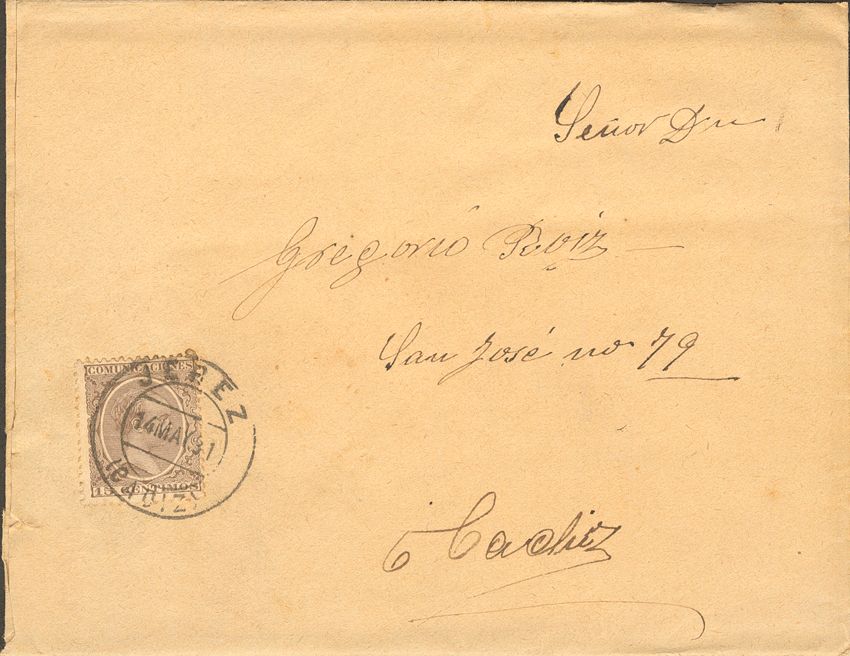 Señor Dn
Gregorio Ruiz
San José no 79
Cadiz
COMUNICACIONES
15 CENTIMOS
JEREZ
14 MAY 91
(CADIZ)